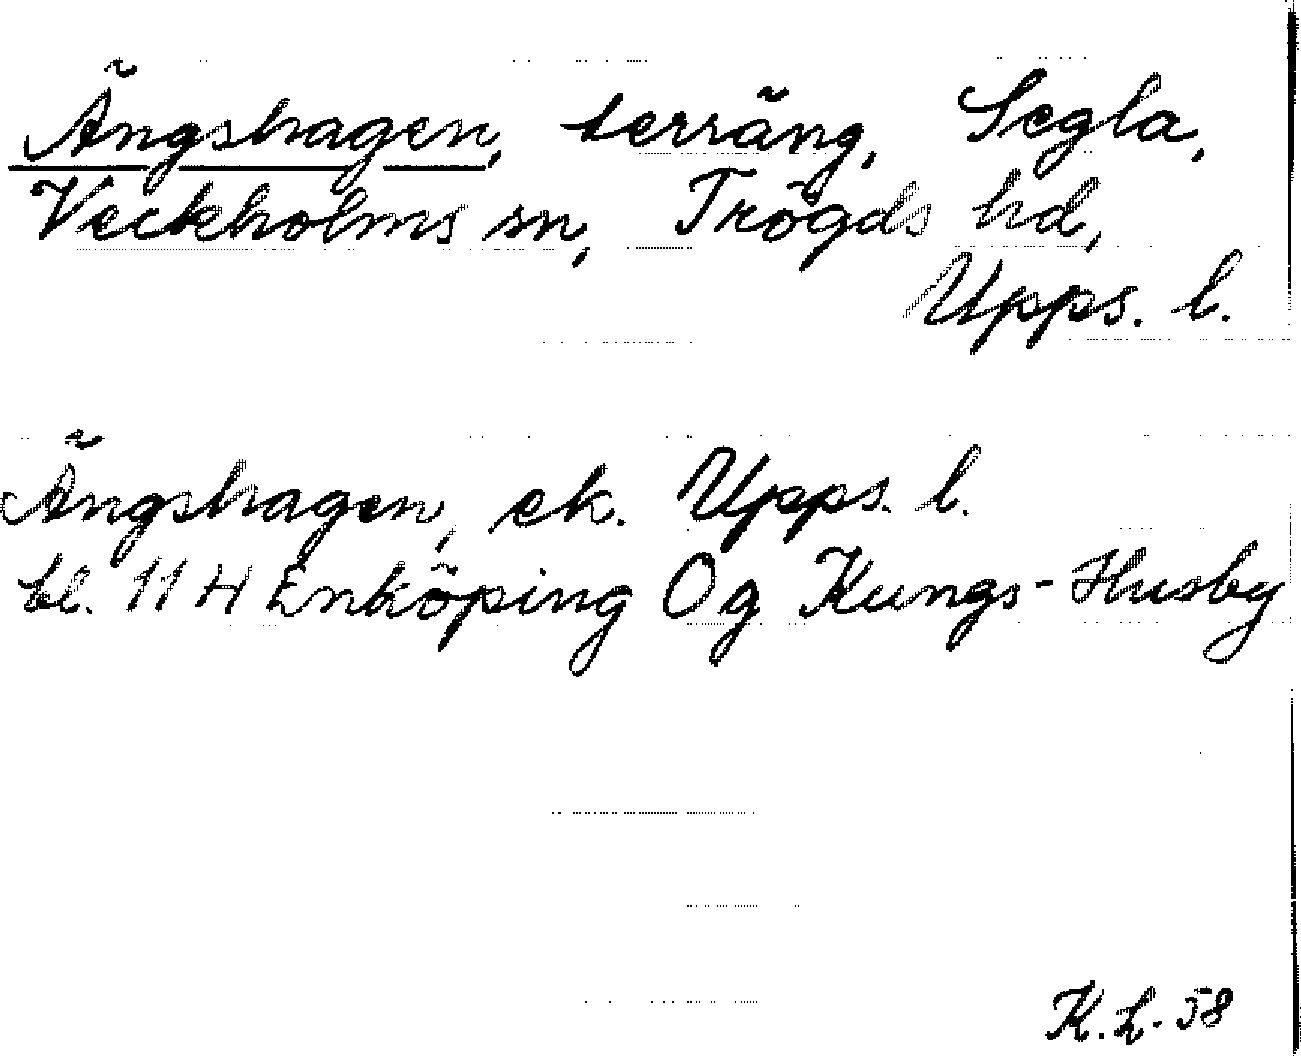 Ängshagen, terräng, Segla,
Veckholms sn, Trögds hd,
Upps. l.
Ängshagen, ek. Upps. l.
bl. 11 H Enköping Og Kungs-Husby
K. L. 58